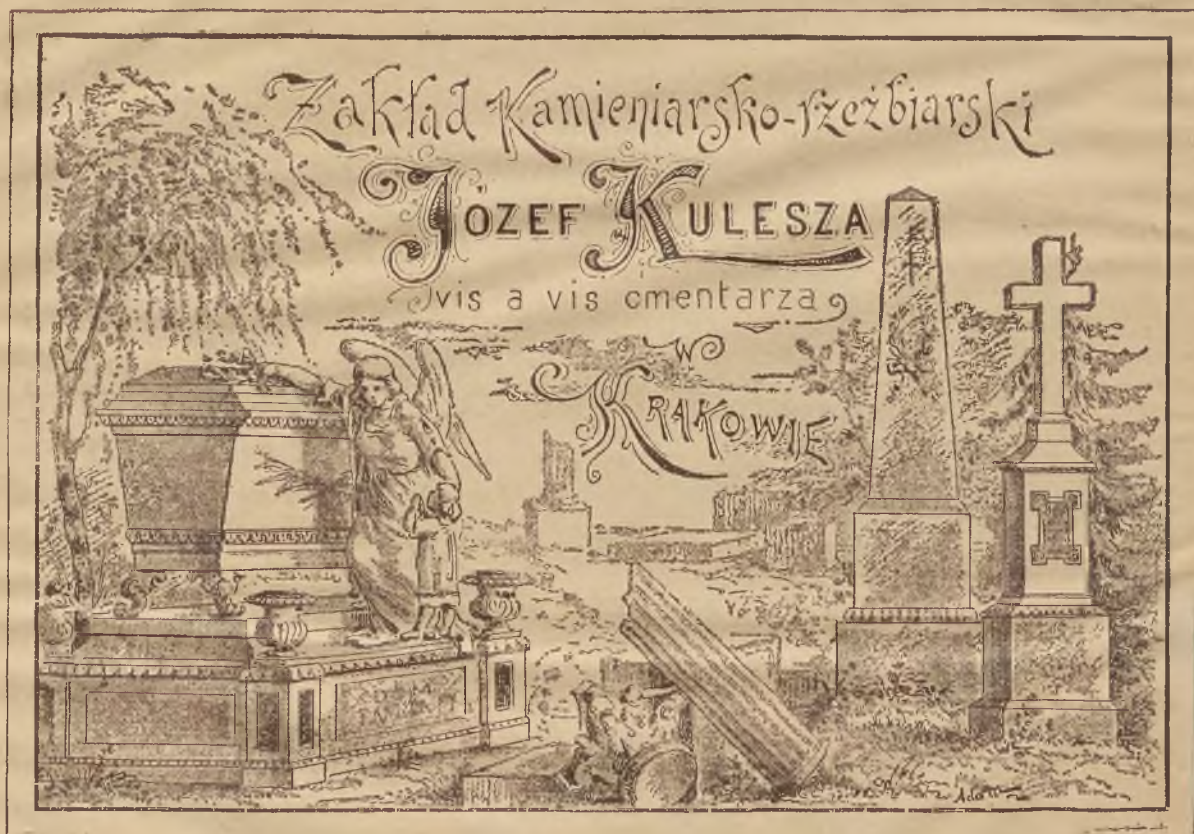 Zakład Kamieniarsko-rzeźbiarski
JÓZEF KULESZA
vis a vis cmentarza
W
KRAKOWIE